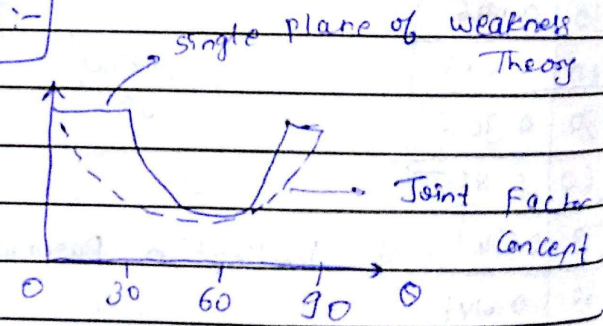 :-
single plane of weakness
Theory
Joint Factor
Concept
0 30 60 90 θ